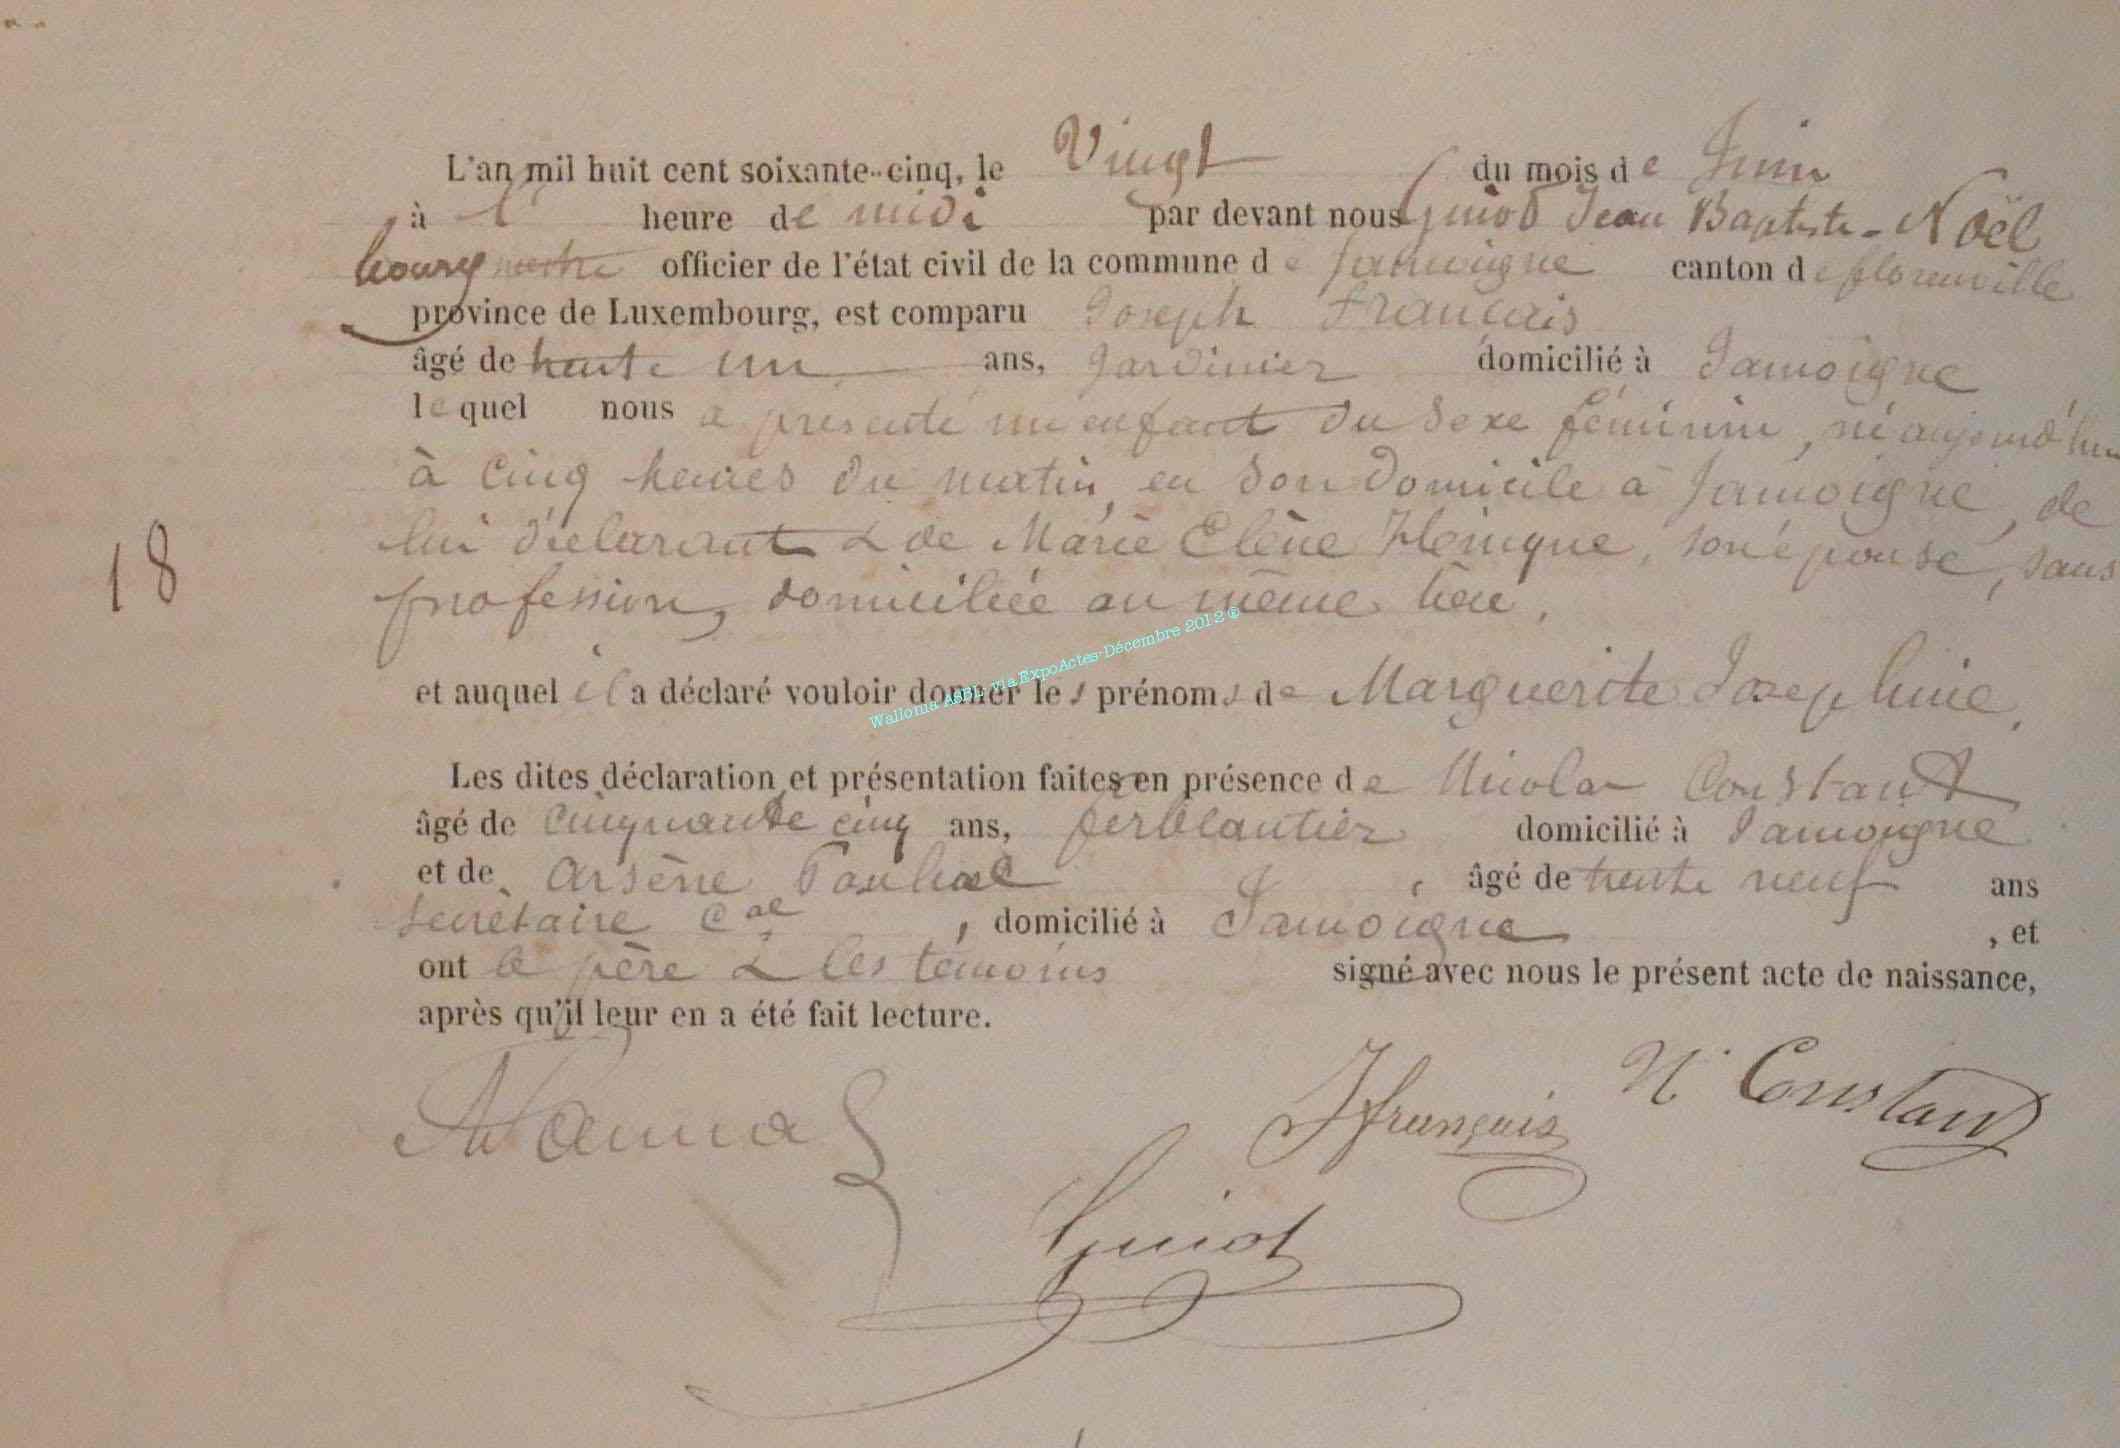 L'an mil huit cent soixante-cinq, le Vingt du mois de Juin
à l' heure de midi par devant nous Guiot Jean Baptiste-Noël
bourgmestre officier de l'état civil de la commune de Jamoigne canton de florenville
province de Luxembourg, est comparu Joseph Francais
âgé de trente un ans, Jardinier domicilié à Jamoigne
lequel nous a présenté un enfant du sexe féminin, né aujourd'hui
à cinq heures du matin, en son domicile à Jamoigne, de
lui déclarant & de Marie Elène Henique, son épouse, sans
profession, domiciliée au même lieu.
18
et auquel il a déclaré vouloir donner les prénoms de Marguerite Josephine.
Wallonia ASBL via ExpoActes-Décembre 2012 ®
Les dites déclaration et présentation faites en présence de Nicolas Constant
âgé de cinquante cinq ans, ferblantier domicilié à Jamoigne
et de Arsène , âgé de trente neuf ans
secrétaire cal , domicilié à Jamoigne , et
ont le père & les témoins signé avec nous le présent acte de naissance,
après qu'il leur en a été fait lecture.
Jfrançais N. Constant
Guiot